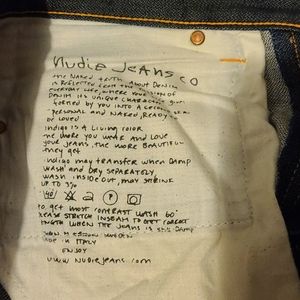 Nudie Jeans co
the Naked truth about Denim
is reflected from the
everyday life, where your sign of
Denim its unique character gives
formed by you into a
personal and naked, ready
be loved
Indigo is a living color
the more you wear and love
your jeans, the more beautiful
they get
Indigo may transfer when damp
wash and dry separately
wash inside out, may shrink
up to 3%
40 P
to get most contrast wash 60°
please stretch inseam to get correct
length when the jeans is still damp
made in Italy
Enjoy
www.nudiejeans.com